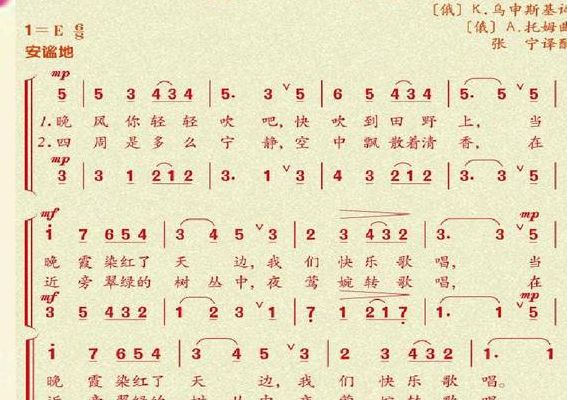 [俄] K.乌申斯基词
1=E 6/8 [俄] A.托姆曲
安谧地 张 宁译配
mp
5 | 5 3 434 | 5. 3 ∨5 | 6 5 434 | 5. 5 ∨5 |
1.晚 风你轻轻 吹 吧,快 吹到田野 上, 当
2.四 周是多么 宁 静,空 中飘散着清 香, 在
mp
3 | 3 1 212 | 3. 1 ∨3 | 4 3 212 | 3. 3 ∨3 |
mf mp
1 7 654 | 3 4 5 ∨3 | 2 3 432 | 3. 3 ∨5 |
晚 霞染红了 天 边,我 们 快乐歌 唱, 当
近 旁翠绿的 树 丛中,夜 莺 婉转歌 唱, 在
mf mp
3 5 432 | 1 2 3 ∨1 | 7 1 217 | 1. 1 ∨5 |
1 7 654 | 3 4 5 ∨3 | 2 3 432 | 1. 1
晚 霞染红了 天 边,我 们 快 乐 歌 唱。
近 旁翠绿的 树 丛中,夜 莺 婉转歌 唱。